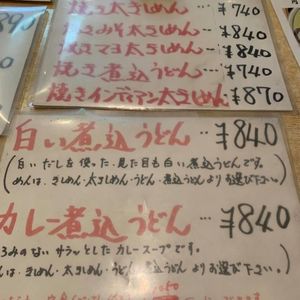 焼き太きしめん … ¥740
焼きみそ太きしめん … ¥840
焼きマヨ太きしめん … ¥840
焼き煮込うどん … ¥740
焼きインディアン太きしめん ¥870
白い煮込うどん … ¥840
(白いだしを使った、見た目も白い煮込うどんです。
めんは、きしめん・太きしめん・うどん・煮込うどんよりお選び下さい。)
カレー煮込うどん … ¥840
ろみのない サラッとしたカレースープです。
んは、きしめん・太きしめん・うどん・煮込うどんよりお選び下さい。)